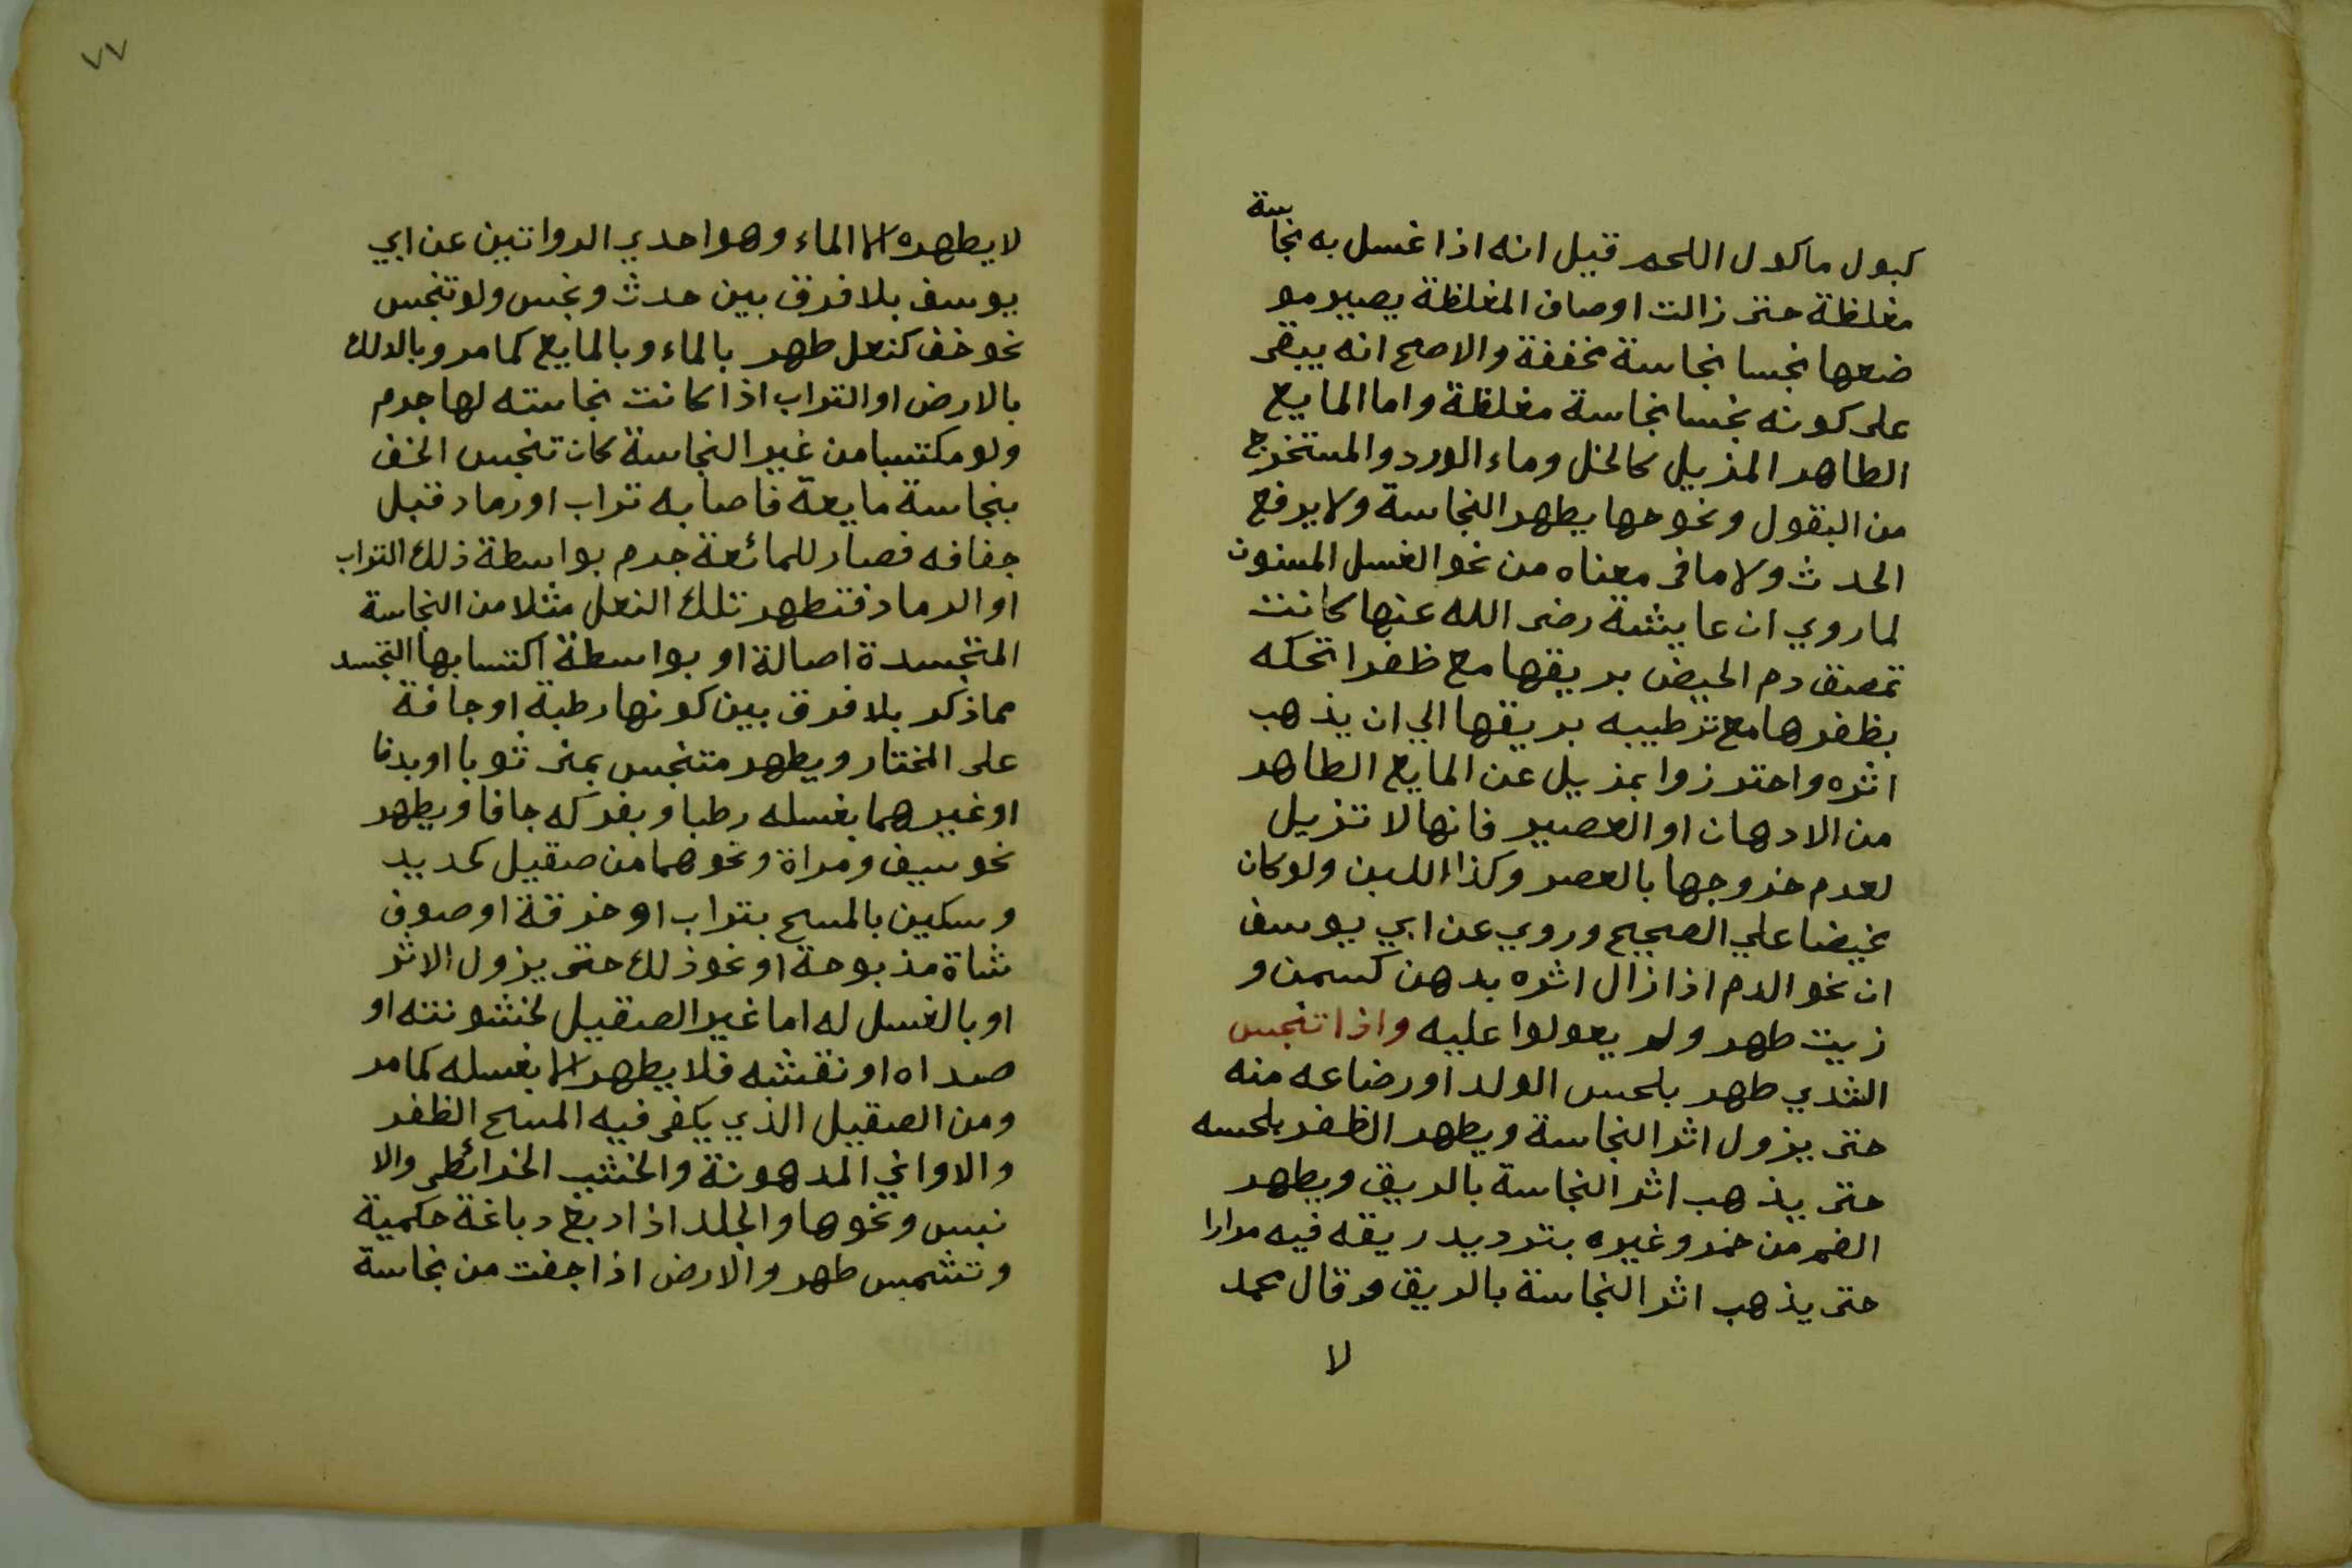 كبول ماكول اللحم قيل انه اذا غسل به نجاسة
مغلظة حتى زالت اوصاف المغلظة يصير مو
ضعها نجسا نجاسة مخففة والاصح انه يبقى
على كونه نجسا نجاسة مغلظة واما المايع
الطاهر المزيل كالخل وماء الورد والمستخرج
من البقول ونحوها يطهر النجاسة ولا يرفع
الحدث ولا ما في معناه من نحو الغسل المسنون
لما روي ان عايشة رضى الله عنها كانت
تمصق دم الحيض بريقها مع ظفرا تحكه
بظفرها مع ترطيبه بريقها الي ان يذهب
اثره واحترزوا بمزيل عن المايع الطاهر
من الادهان او العصير فانها لا تزيل
لعدم خروجها بالعصر وكذا اللبن ولو كان
مخيضا علي الصحيح وروي عن ابي يوسف
ان نحو الدم اذا زال اثره بدهن كسمن و
زيت طهر ولم يعولوا عليه واذا تنجس
الثدي طهر بلحس الولد او رضاعه منه
حتى يزول اثر النجاسة ويطهر الظفر بلحسه
حتى يذهب اثر النجاسة بالريق ويطهر
الفم من خمر وغيره بترديد ريقه فيه مرارا
حتى يذهب اثر النجاسة بالريق وقال محمد
لا
٧٧
لا يطهره الا الماء وهو احدي الرواتين عن ابي
يوسف بلا فرق بين حدث ونجس ولو تنجس
نحو خف كنعل طهر بالماء وبالمايع كما مر وبالدلك
بالارض او التراب اذا كانت نجاسته لها جرم
ولو مكتسبا من غير النجاسة كان تنجس الخف
بنجاسة مايعة فاصابه تراب او رماد قبل
جفافه فصار للمائعة جرم بواسطة ذلك التراب
او الرماد فتطهر تلك النعل مثلا من النجاسة
المتجسدة اصالة او بواسطة اكتسابها التجسد
مما ذكر بلا فرق بين كونها رطبة او جافة
على المختار ويطهر متنجس بمنى ثوبا او بدنا
او غيرهما بغسله رطبا وبفركه جافا ويطهر
نحو سيف ومراة ونحوهما من صقيل كحديد
وسكين بالمسح بتراب او خرقة او صوف
شاة مذبوحة او نحو ذلك حتى يزول الاثر
او بالغسل له اما غير الصقيل لخشونته او
صداه او نقشه فلا يطهر الا بغسله كما مر
ومن الصقيل الذي يكفى فيه المسح الظفر
والاواني المدهونة والخشب الخرائطى والا
نبس ونحوها والجلد اذا دبغ دباغة حكمية
وتشمس طهر والارض اذا جفت من نجاسة